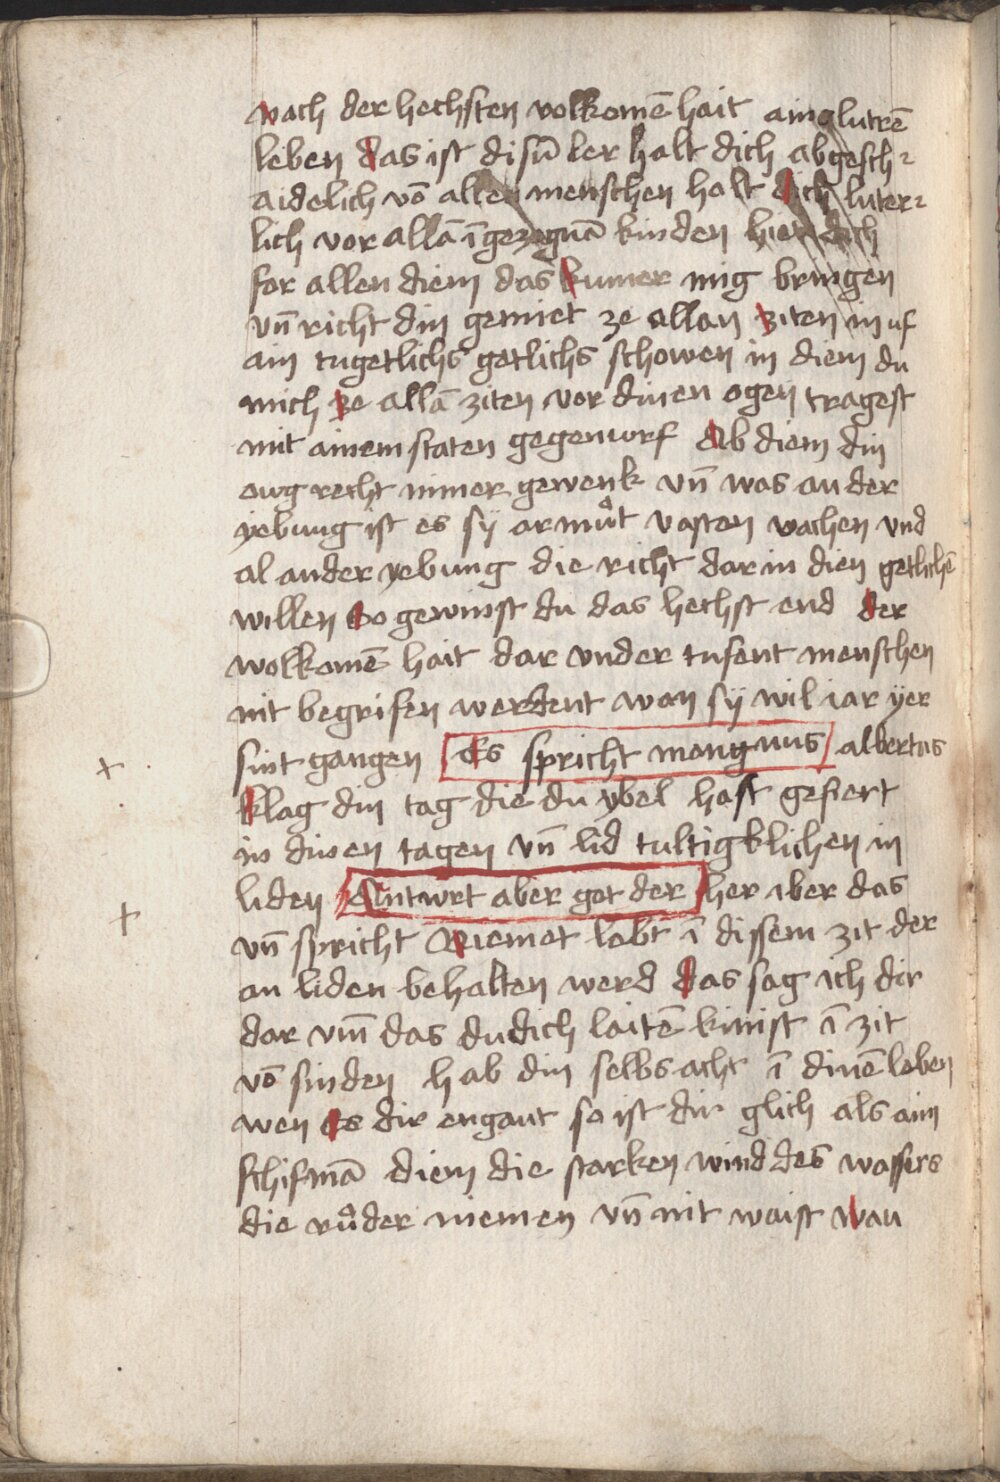 nach der hechsten volkomē hait ains lutrē
leben das ist disū ler halt dich abgesch-
aidelich vō allen menschen halt dich luter-
lich vor allā īgezognā binden hiet dich
for allen diem das kumer mig bringen
vn̄ richt din gemiet ze allan ziten in uf
ain tugetlichs getlichs schowen in diem du
mich ze allā ziten vor dinen ogen tragest
mit ainem staten gegenwrf Ab diem din
owg recht nimer gewenk vn̄ was an der
yebung ist es sÿ armůt vasten wachen vnd
al ander yebung die richt dar in dien getlichē
willen So gewinst du das hechst end der
wolkomē hait dar vnder tusent menschen
nit begrifen werdent wan sÿ wil iar yer
sint gangen Es spricht mangnus albertus
klag din tag die du ybel hast gefiert
in dinen tagen vn̄ lid tultigklichen in
liden Antwrt aber got der her iber das
vn̄ spricht Niemet labt ī dissem zit der
an liden behalten werd das sag ich dir
dar vm̄ das du dich laitē kinist ī zit
vō sinden hab din selbs acht ī dinē leben
wen es dir engant so ist dir glich als aim
schifmā diem die starken wind des wassers
die růder niemen vn̄ nit waist wan